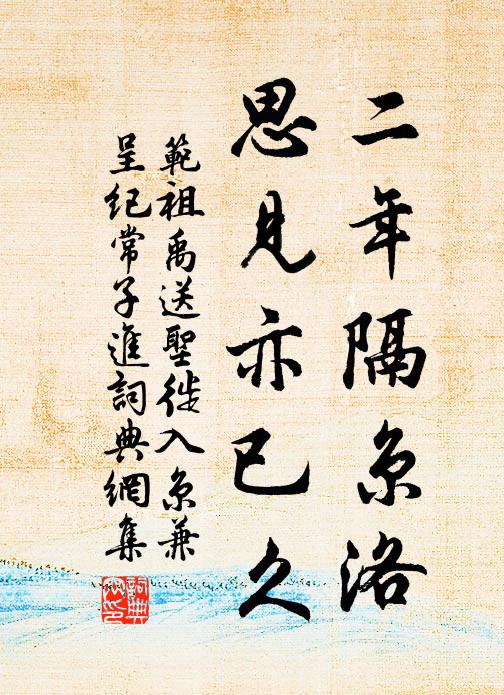 二年隔京洛
思見亦已久
範祖禹送聖徒入京兼
呈紀常子進詞典網集